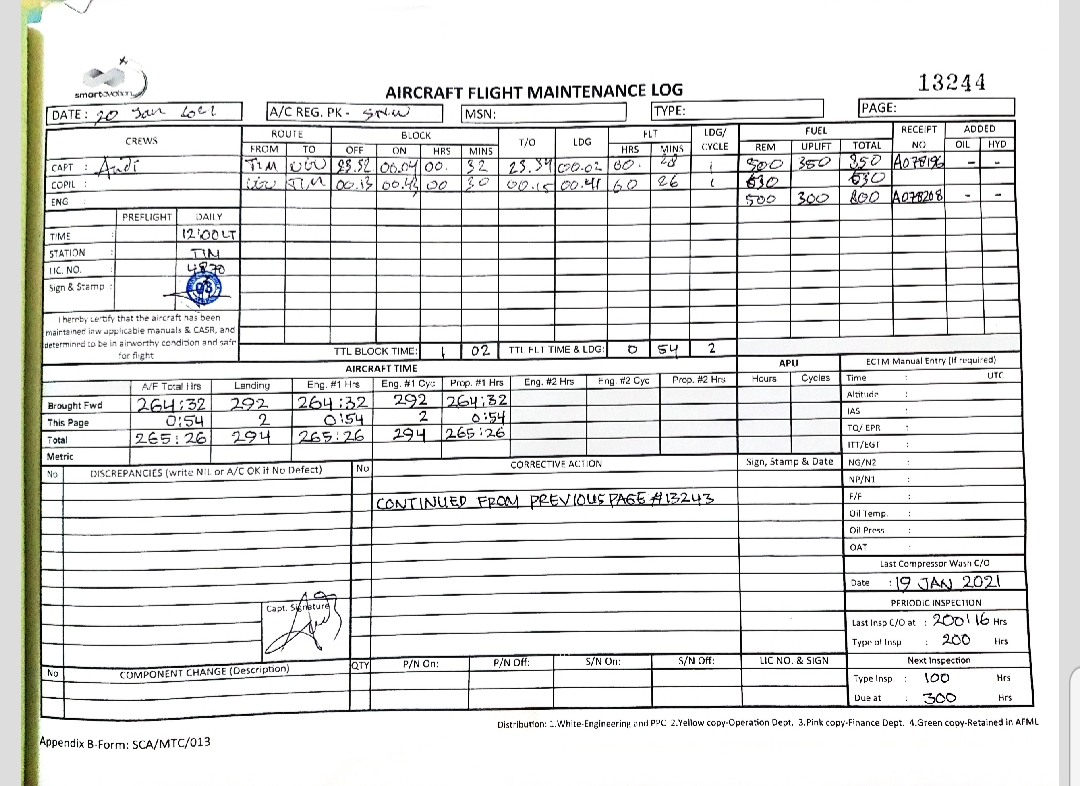 smartaviation
AIRCRAFT FLIGHT MAINTENANCE LOG
13244
DATE: 20 Jan 2021 A/C REG. PK - SNW MSN: TYPE: PAGE:
CREWS ROUTE BLOCK T/O LDG FLT LDG/ CYCLE FUEL RECEIPT NO ADDED
FROM TO OFF ON HRS MINS HRS MINS REM UPLIFT TOTAL OIL HYD
CAPT : Andi TIM UUU 23.32 00.04 00. 32 23.34 00.02 00. 28 1 500 350 850 A078196 - -
COPIL : UUU TIM 00.13 00.43 00 30 00.15 00.41 00 26 1 630 630
ENG 500 300 800 A078208 - -
PREFLIGHT DAILY
TIME : 12:00 LT
STATION : TIM
LIC. NO. : 4870
Sign & Stamp :
I hereby certify that the aircraft has been
maintained iaw applicable manuals & CASR, and
determined to be in airworthy condition and safe
for flight
TTL BLOCK TIME: 1 02 TTL FLT TIME & LDG: 0 54 2
AIRCRAFT TIME APU ECTM Manual Entry (If required)
A/F Total Hrs Landing Eng. #1 Hrs Eng. #1 Cyc Prop. #1 Hrs Eng. #2 Hrs Eng. #2 Cyc Prop. #2 Hrs Hours Cycles Time : UTC
Brought Fwd 264:32 292 264:32 292 264:32 Altitude :
This Page 0:54 2 0:54 2 0:54 IAS :
Total 265:26 294 265:26 294 265:26 TQ/ EPR :
Metric ITT/EGT :
No DISCREPANCIES (write NIL or A/C OK if No Defect) No CORRECTIVE ACTION Sign, Stamp & Date NG/N2 :
NP/N1 :
CONTINUED FROM PREVIOUS PAGE #13243 F/F :
Oil Temp. :
Oil Press :
OAT :
Last Compressor Wash C/O
Date : 19 JAN 2021
PERIODIC INSPECTION
Capt. Signature
Last Insp C/O at : 200:16 Hrs
Type of Insp : 200 Hrs
No COMPONENT CHANGE (Description) QTY P/N On: P/N Off: S/N On: S/N Off: LIC NO. & SIGN Next Inspection
Type Insp : 100 Hrs
Due at : 300 Hrs
Distribution: 1.White-Engineering and PPC 2.Yellow copy-Operation Dept. 3.Pink copy-Finance Dept. 4.Green copy-Retained in AFML
Appendix B-Form: SCA/MTC/013